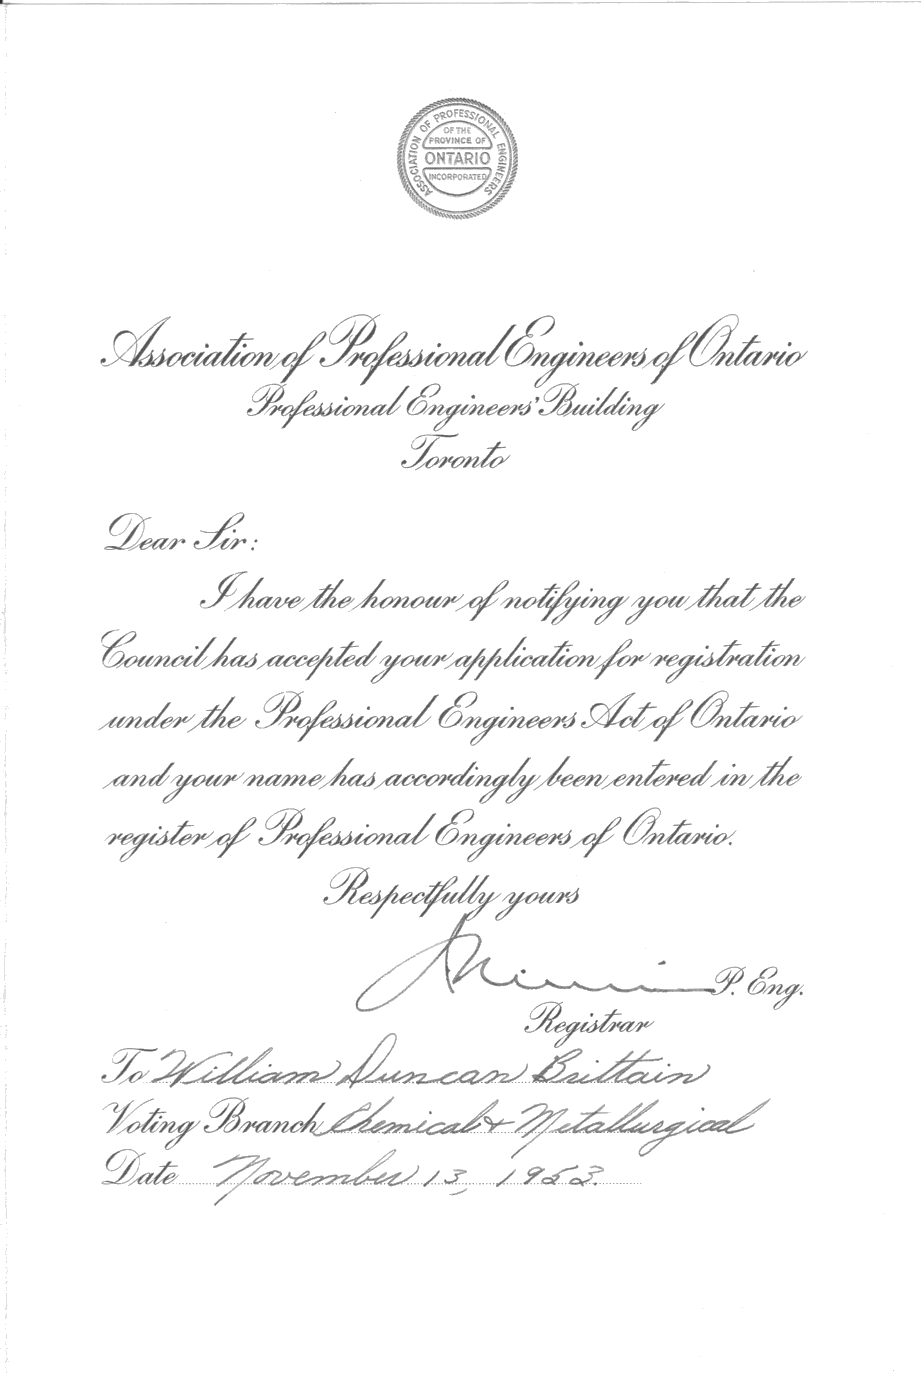 ASSOCIATION OF PROFESSIONAL ENGINEERS
OF THE
PROVINCE OF
ONTARIO
INCORPORATED
Association of Professional Engineers of Ontario
Professional Engineers' Building
Toronto
Dear Sir:
I have the honour of notifying you that the
Council has accepted your application for registration
under the Professional Engineers Act of Ontario
and your name has accordingly been entered in the
register of Professional Engineers of Ontario.
Respectfully yours
P. Eng.
Registrar
To William Duncan Brittain
Voting Branch Chemical & Metallurgical
Date November 13, 1953.